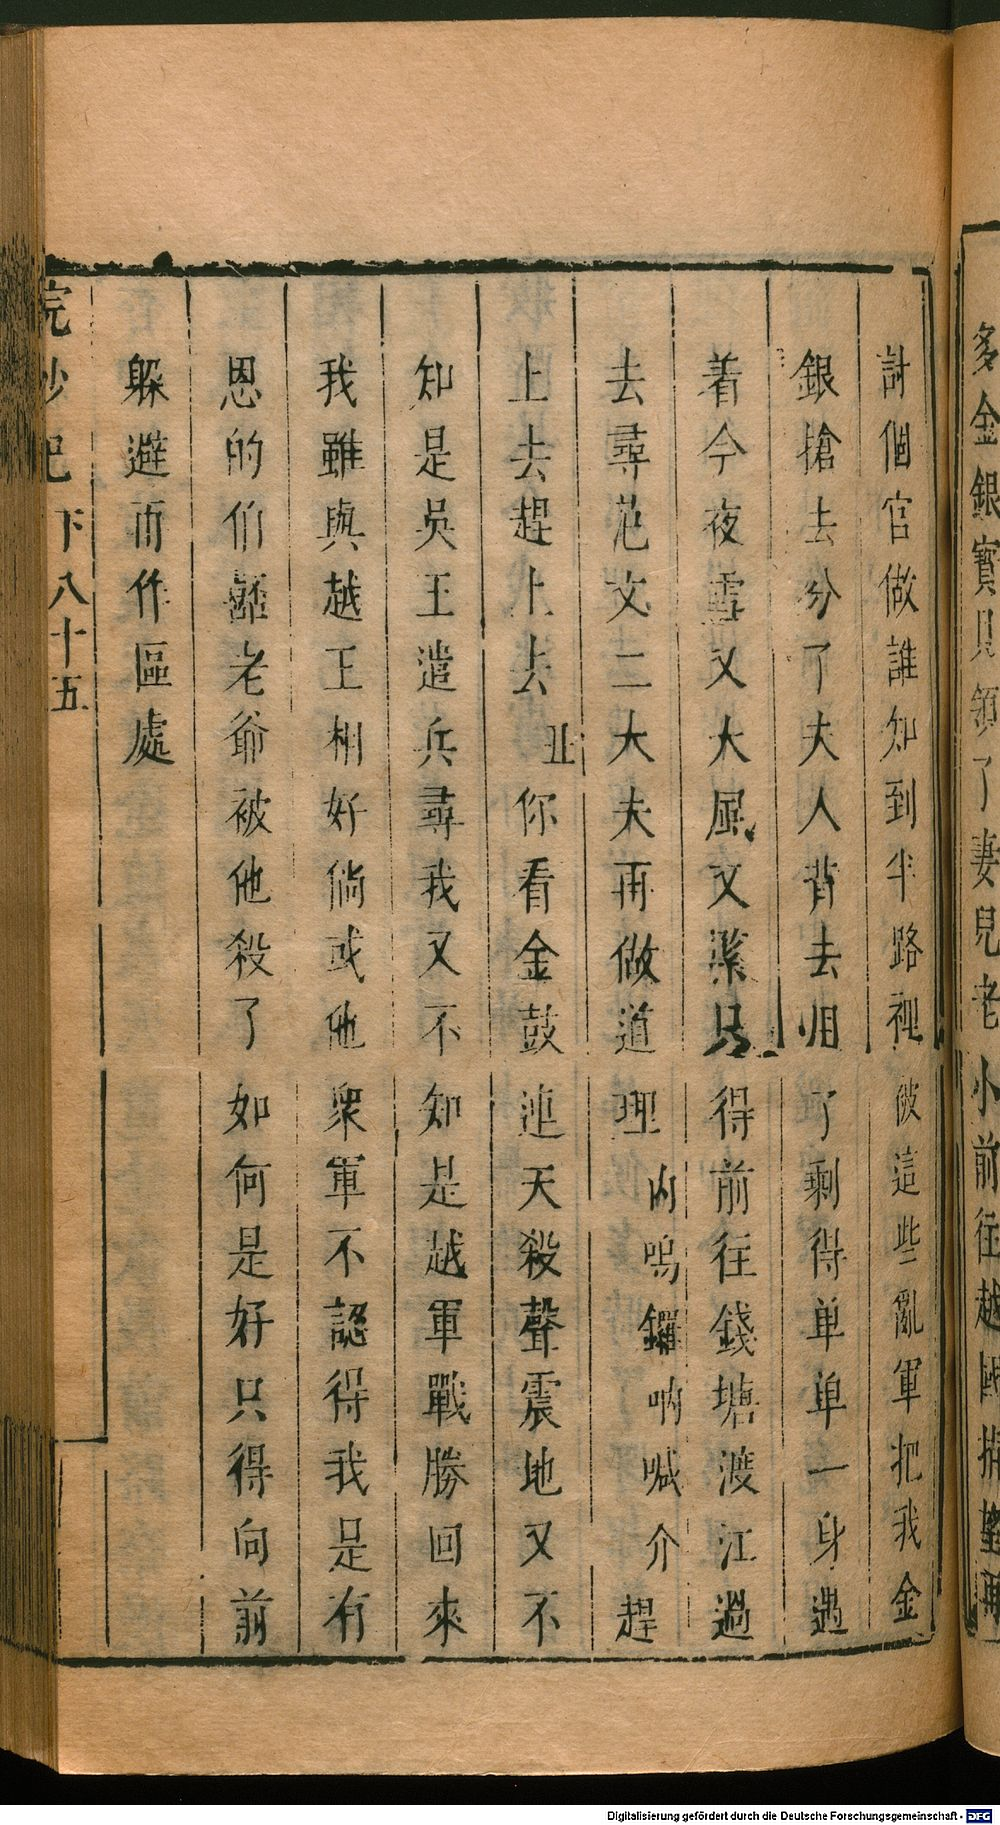 多金銀寳貝領了妻兒老小前徃越國
討個官做誰知到半路裡被這些亂軍把我金
銀搶去分了夫人背去归了剩得单单一身遇
着今夜雪又大風又緊只得前徃錢塘渡江過
去尋范文二大夫再做道理内鳴鑼吶喊介趕
上去趕上去丑你看金鼓連天殺聲震地又不
知是吳王遣兵尋我又不知是越軍戰勝回來
我雖與越王相好倘或他衆軍不認得我是有
恩的伯嚭老爺被他殺了如何是好只得向前
躲避而作區處
浣紗記下八十五
Digitalisierung gefördert durch die Deutsche Forschungsgemeinschaft - DFG